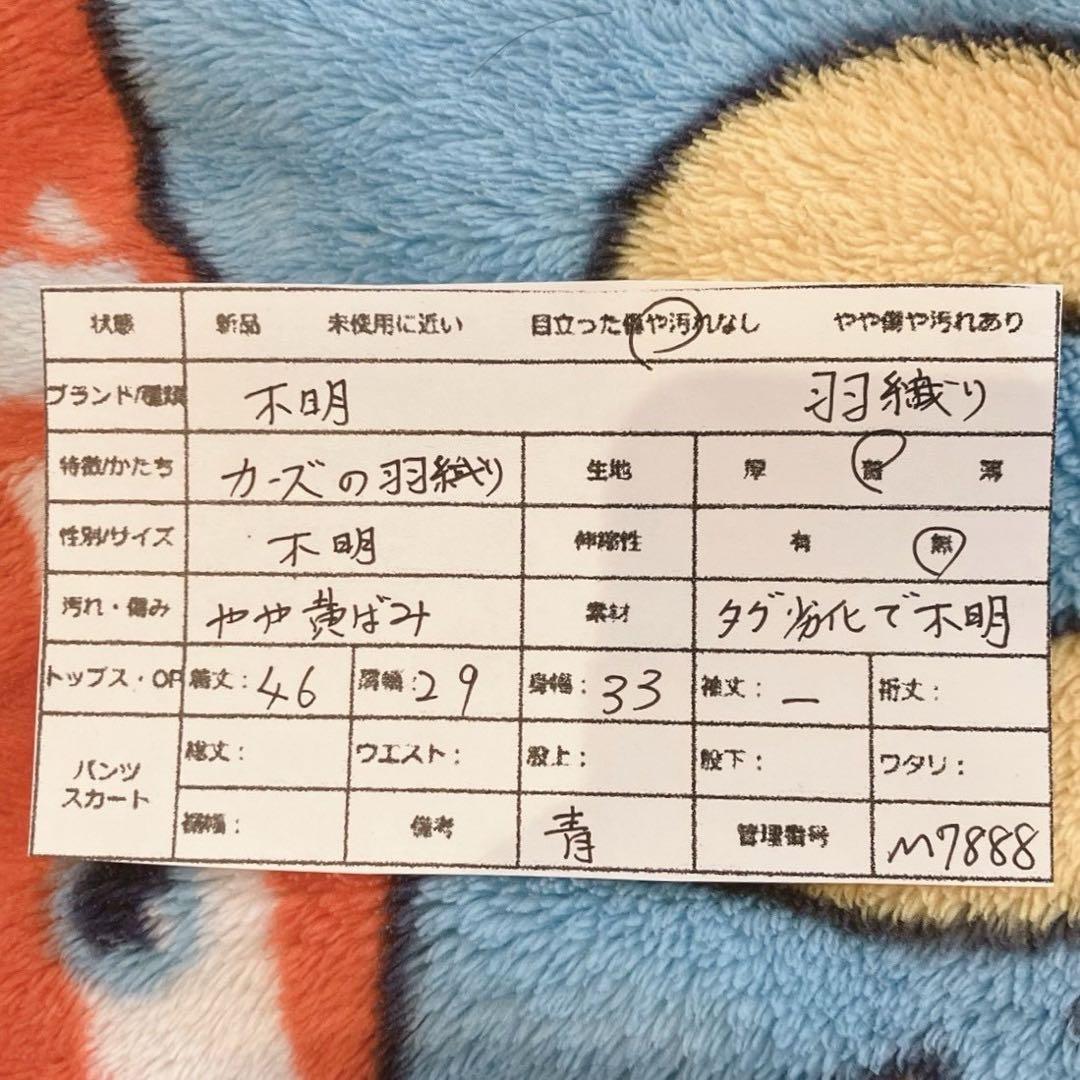 状態 新品 未使用に近い 目立った傷や汚れなし やや傷や汚れあり
ブランド/種類 不明 羽織り
特徴/かたち カーズの羽織り 生地 厚 普 薄
性別/サイズ 不明 伸縮性 有 無
汚れ・傷み やや黄ばみ 素材 タグ劣化で不明
トップス・OP 着丈:46 肩幅:29 身幅:33 袖丈:ー 裄丈:
パンツ スカート 総丈: ウエスト: 股上: 股下: ワタリ:
裾幅: 備考 青 管理番号 M7888